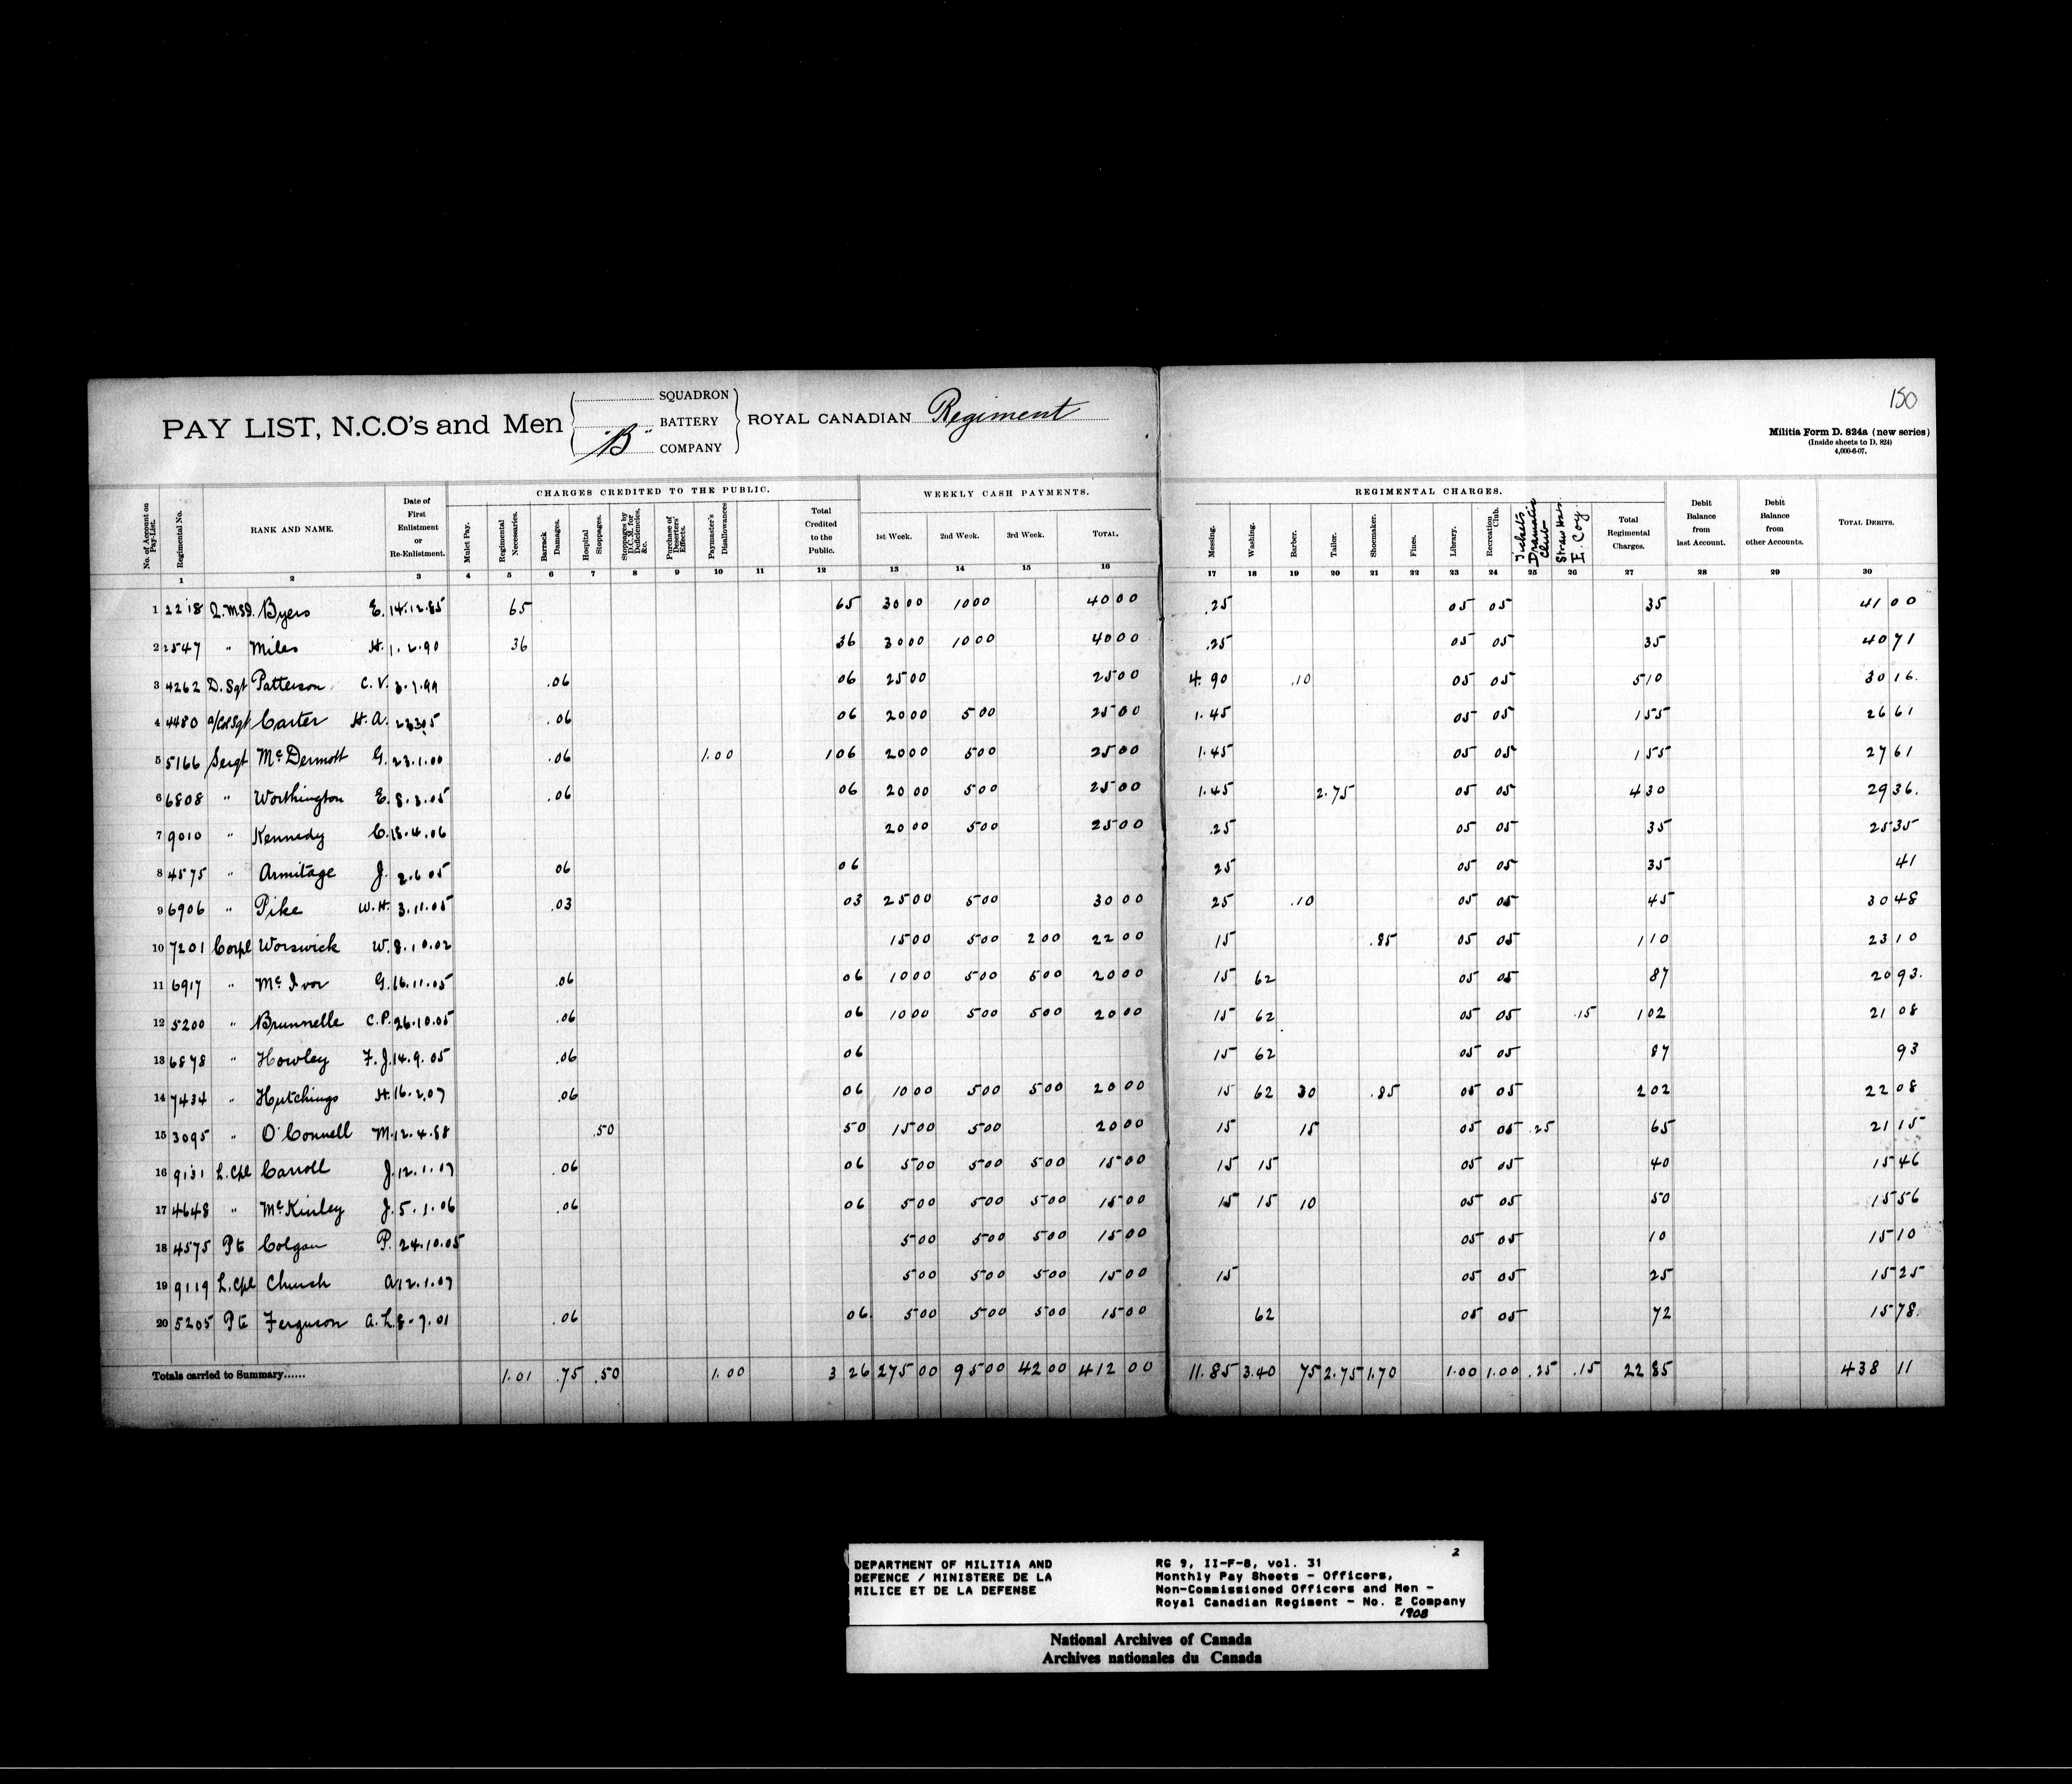 150
PAY LIST, N.C.O's and Men "B" SQUADRON BATTERY COMPANY ROYAL CANADIAN Regiment
Militia Form D. 824a (new series)
(Inside sheets to D. 824)
4,000-6-07.
CHARGES CREDITED TO THE PUBLIC. WEEKLY CASH PAYMENTS. REGIMENTAL CHARGES.
No. of Account on Pay-List. Regimental No. RANK AND NAME. Date of First Enlistment or Re-Enlistment. Mulct Pay. Regimental Necessaries. Barrack Damages. Hospital Stoppages. Stoppages by D.C.M. for Deficiencies, &c. Purchase of Deserters' Effects. Paymaster's Disallowances Total Credited to the Public. 1st Week. 2nd Week. 3rd Week. TOTAL. Messing. Washing. Barber. Tailor. Shoemaker. Fines. Library. Recreation Club. Tickets Dramatic Club Straw Hats E. Coy Total Regimental Charges. Debit Balance from last Account. Debit Balance from other Accounts. TOTAL DEBITS.
1 2 3 4 5 6 7 8 9 10 11 12 13 14 15 16 17 18 19 20 21 22 23 24 25 26 27 28 29 30
1 2218 Q.M.S.I. Byers E. 14.12.85 65 65 30 00 10 00 40 00 .25 05 05 35 41 00
2 2547 " Miles H. 1.2.90 36 36 30 00 10 00 40 00 .25 05 05 35 40 71
3 4262 D. Sgt Patterson C. V. 3.1.99 .06 06 25 00 25 00 4.90 .10 05 05 5 10 30 16.
4 4480 a/Cr Sgt Carter H. A. .06 06 20 00 5 00 25 00 1.45 05 05 1 55 26 61
5 5166 Sergt McDermott G. 23.1.00 .06 1.00 1 06 20 00 5 00 25 00 1.45 05 05 1 55 27 61
6 6808 " Worthington E. 8.3.05 .06 06 20 00 5 00 25 00 1.45 2.75 05 05 4 30 29 36.
7 9010 " Kennedy C. 18.4.06 20 00 5 00 25 00 .25 05 05 35 25 35
8 4575 " Armitage J. 2.6.05 06 06 25 05 05 35 41
9 6906 " Pike W.H. 3.11.05 .03 03 25 00 5 00 30 00 25 .10 05 05 45 30 48
10 7201 Corpl Worswick W. 8.10.02 15 00 5 00 2 00 22 00 15 .85 05 05 1 10 23 10
11 6917 " McIvor G. 16.11.05 .06 06 10 00 5 00 5 00 20 00 15 62 05 05 87 20 93.
12 5200 " Brunnelle C.P. 26.10.05 .06 06 10 00 5 00 5 00 20 00 15 62 05 05 .15 1 02 21 08
13 6878 " Howley F. J. 14.9.05 .06 06 15 62 05 05 87 93
14 7434 " Hutchings H. 16.2.07 .06 06 10 00 5 00 5 00 20 00 15 62 30 .85 05 05 2 02 22 08
15 3095 " O'Connell M. 12.4.88 .50 50 15 00 5 00 20 00 15 15 05 05 .25 65 21 15
16 9131 L. Cpl Carroll J. 12.1.07 .06 06 5 00 5 00 5 00 15 00 15 15 05 05 40 15 46
17 4648 " McKinley J. 5.1.06 .06 06 5 00 5 00 5 00 15 00 15 15 10 05 05 50 15 56
18 4575 Pte Colgan P. 24.10.05 5 00 5 00 5 00 15 00 05 05 10 15 10
19 9119 L. Cpl Church A 12.1.07 5 00 5 00 5 00 15 00 15 05 05 25 15 25
20 5205 Pte Ferguson A. L. 8.7.01 .06 06. 5 00 5 00 5 00 15 00 62 05 05 72 15 78.
Totals carried to Summary...... 1.01 .75 .50 1.00 3 26 275 00 95 00 42 00 412 00 11.85 3.40 75 2.75 1.70 1.00 1.00 .25 .15 22 85 438 11
2
DEPARTMENT OF MILITIA AND
DEFENCE / MINISTERE DE LA
MILICE ET DE LA DEFENSE
RG 9, II-F-8, vol. 31
Monthly Pay Sheets - Officers,
Non-Commissioned Officers and Men -
Royal Canadian Regiment - No. 2 Company
1908
National Archives of Canada
Archives nationales du Canada